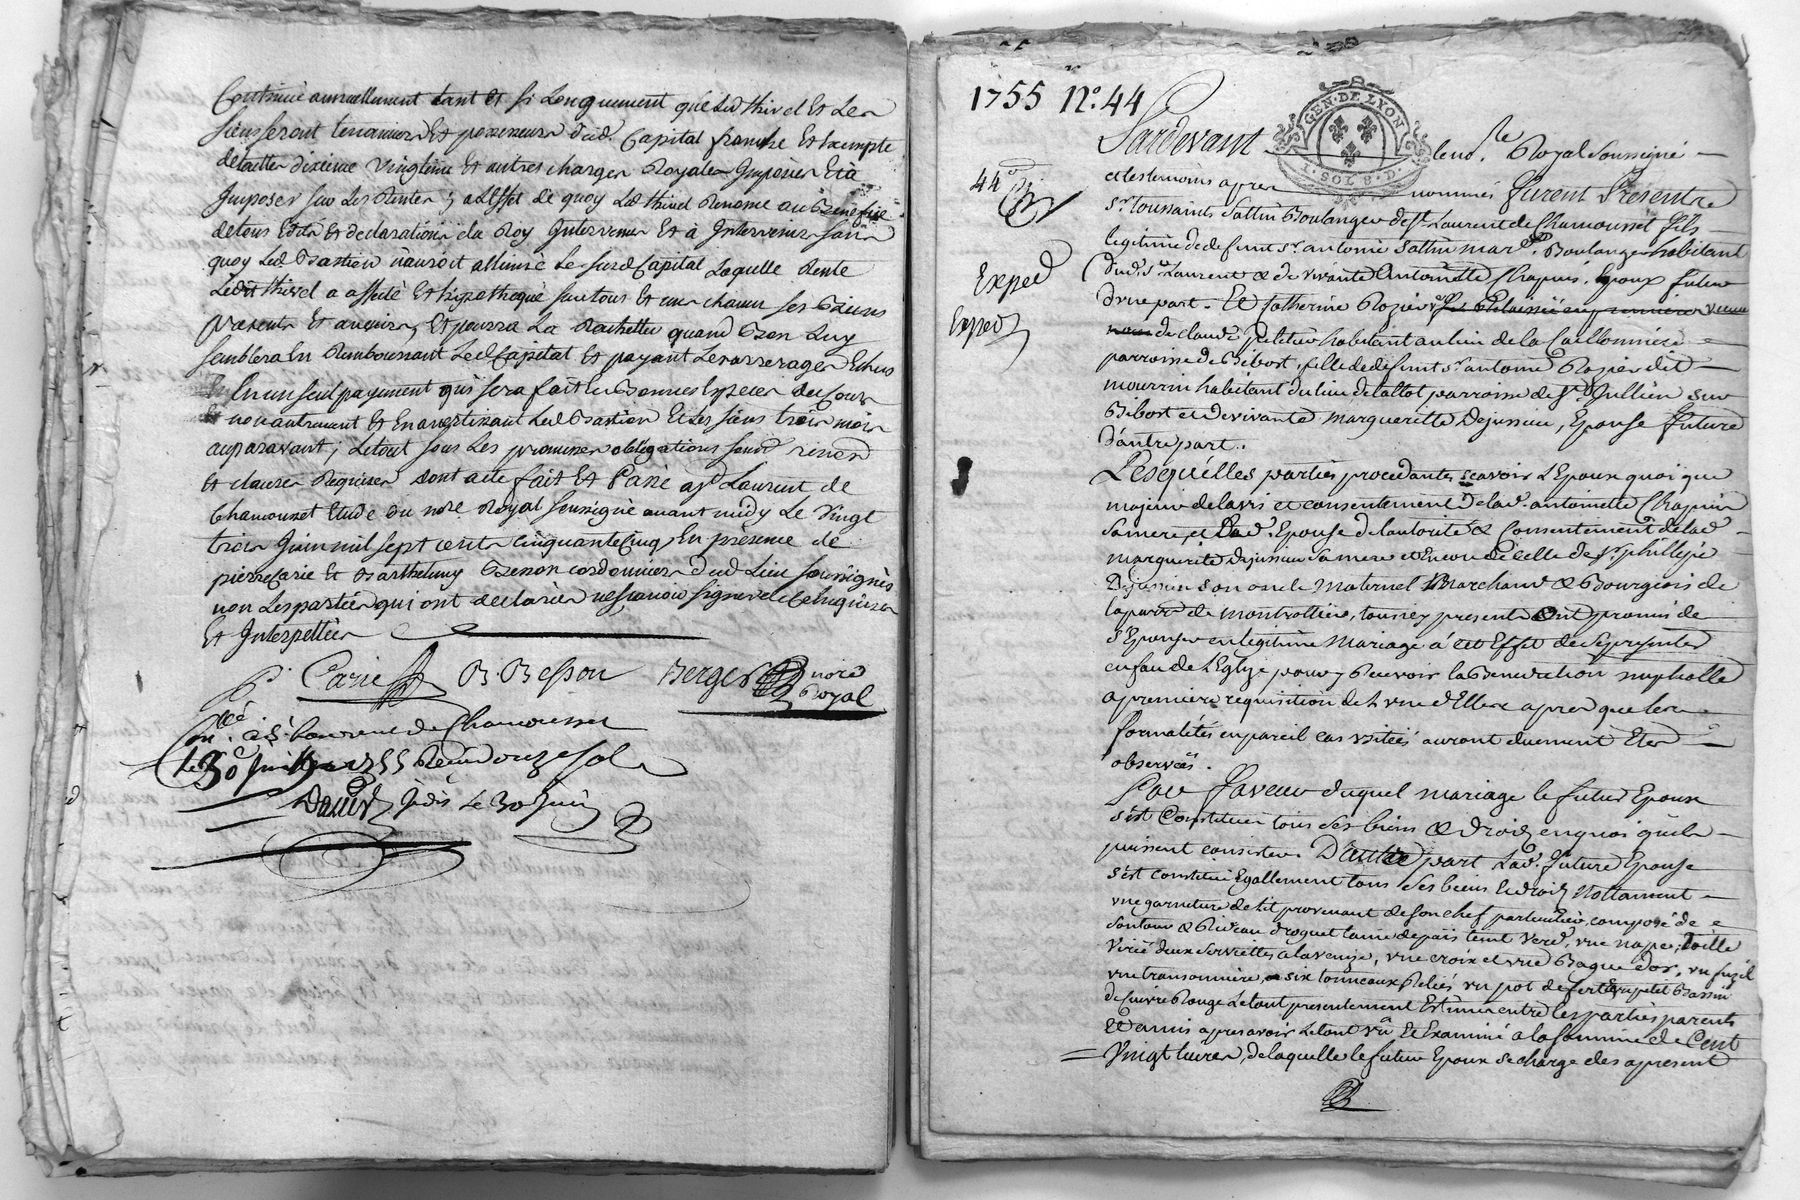 Continué annuellement tant et si Longuement que Led thivel Et Les
siens seront tenanciers Et possesseurs dud. Capital franche Et Exempte
de taille dixieme vingtieme Et autres charges Royales Imposées Et à
Imposer sur Les Rentes ; a L'effet de quoy Led thivel Renonce au Benefice
de tous Edits Et declarations du Roy Intervenus Et à Intervenir sans
quoy Led Bastien n'auroit alliené Le susd Capital Laquelle Rente
Ledit thivel a affecté Et hipothequé sur tous Et un chacun ses Biens
presents Et avenirs, Et pourra La Rachetter quand Bon Luy
semblera En Remboursant Led Capital Et payant Les arrerages Echus
En un seul payement qui sera fait En Bonnes Especes de Cours
Et non autrement Et En avertissant Led Bastien Et Les siens trois mois
auparavant ; Le tout sous Les promesses obligations soumd renond
Et clauses Requises dont acte fait Et Passé a St Laurent de
Chamousset Etude du nore Royal soussigné avant midy Le Vingt
trois Juin mil sept cents cinquante Cinq En presence de
pierre Carie Et Barthelemy Besson cordonniers dud Lieu soussignés
non Les parties qui ont declarées ne sçavoir signer de Ce Enquises
Et Interpellées
P. Carie B. Besson Berger nore
Royal
Con.llé à St Laurent de Chamousset
Le 30e Juin 1755 Receu douze sols
David Jdis Le 30 Juin
1755 No. 44
GEN. DE LYON
1. SOL 8. D.
Pardevant le no.re Royal soussigné
44
et les temoins apres nommés furent Presents
sr. toussaints sattin Boulanger de St. Laurent de Chamousset fils
legitime de defunt sr. antoine sattin mard. Boulanger habitant
Exped
dud. St. Laurent & de vivante Antoinette Chapuis, Epoux futur
d'une part. Et Catherine Rozier
Exped
de claude pelitier habitant au lieu de la Caillonniere
parroisse de Bibost, fille de defunt sr. antoine Rozier dit
mourrin habitant du lieu de lallot parroisse de St. Jullien sur
Bibost et de vivante margueritte Dejussieu, Epouse future
d'autre part.
Lesquelles parties procedantes scavoir L'Epoux quoi que
majeur de lavis et consentement de lad. antoinette Chapuis
sa mere, et Lad. Epouse de lautorité & Consentement de lad
marguerite Dejussieu sa mere et Encore de celle de sr. phillipe
Dejussieu son oncle maternel Marchand & Bourgeois de
la parr de montrottier, tous icy presents Ont promis de
s'Epouser en legitime mariage à cet Effet de se presenter
en face de L'Eglize pour y Recevoir la Benediction nuptialle
a premiere requisition de L'une d'Elles apres que les
formalités en pareil cas usitées auront duement Eté
observées.
En Faveur duquel mariage le futur Epoux
s'est Constitué tous ses biens & droits en quoi qu'ils
puissent consister D'autre part Lad. future Epouse
s'est constitué Egallement tous ses biens & droits Nottament
une garniture de lit provenant de son chef particulier, composé de
contour & Rideau droguet laine de païs teint verd, une nape, toille
deux serviettes a la venize, une croix et une Bague d'or, un fuzil
six tonneaux Reliés un pot de fer un petit Bassin
de cuivre Rouge Le tout presentement Estimé entre les parties parents
Et amis apres avoir Le tout vû Et Examiné a la somme de Cent
Vingt livres, de laquelle le futur Epoux se charge des apresent